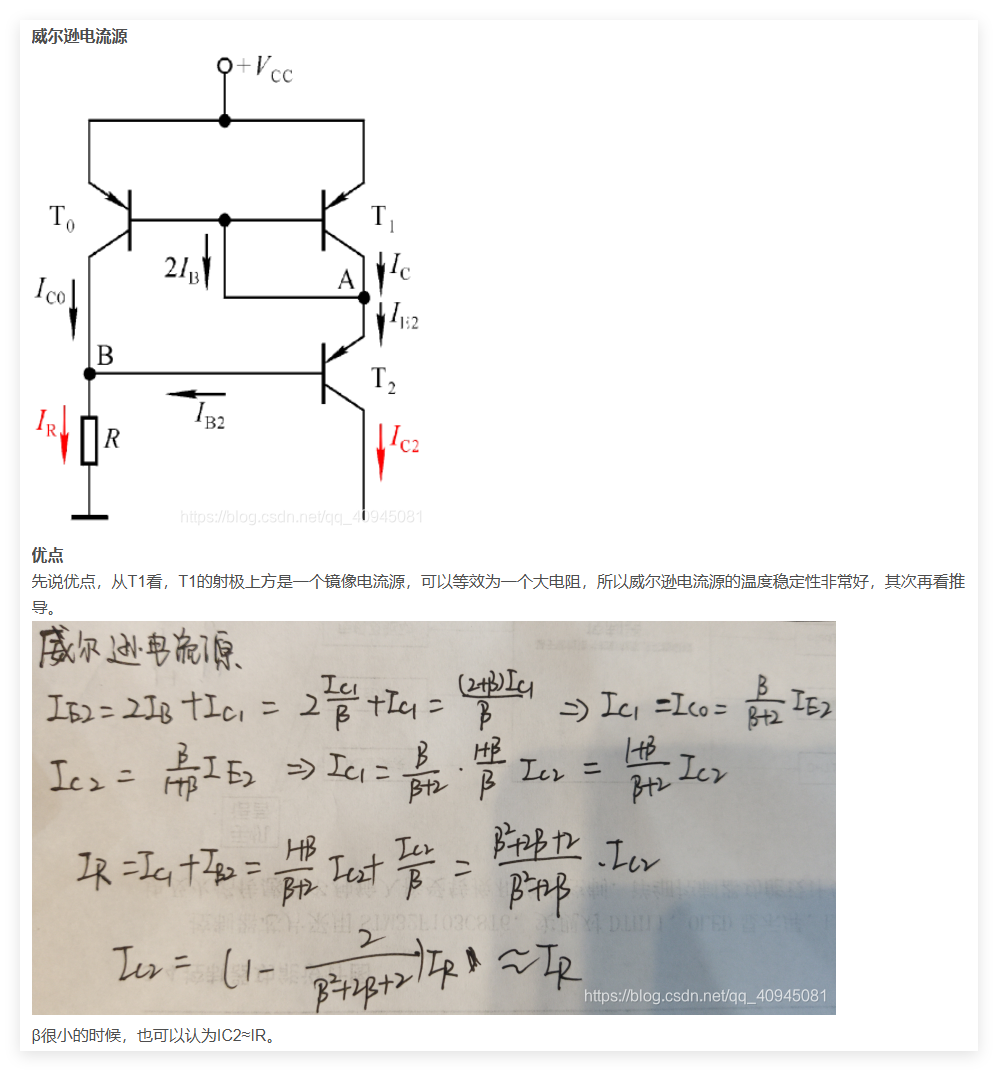 威尔逊电流源
+VCC
T0
T1
2IB
A
IC
IC0
IE2
B
T2
IB2
IR
R
IC2
https://blog.csdn.net/qq_40945081
优点
先说优点，从T1看，T1的射极上方是一个镜像电流源，可以等效为一个大电阻，所以威尔逊电流源的温度稳定性非常好，其次再看推
导。
威尔逊电流源
IE2 = 2IB + IC1 = 2 IC1/β + IC1 = (2+β)IC1/β ⇒ IC1 = IC0 = β/(β+2) IE2
IC2 = β/(1+β) IE2 ⇒ IC1 = β/(β+2) · (1+β)/β IC2 = (1+β)/(β+2) IC2
IR = IC1 + IB2 = (1+β)/(β+2) IC2 + IC2/β = (β²+2β+2)/(β²+2β) · IC2
IC2 = (1 - 2/(β²+2β+2)) IR ≈ IR
https://blog.csdn.net/qq_40945081
β很小的时候，也可以认为IC2≈IR。